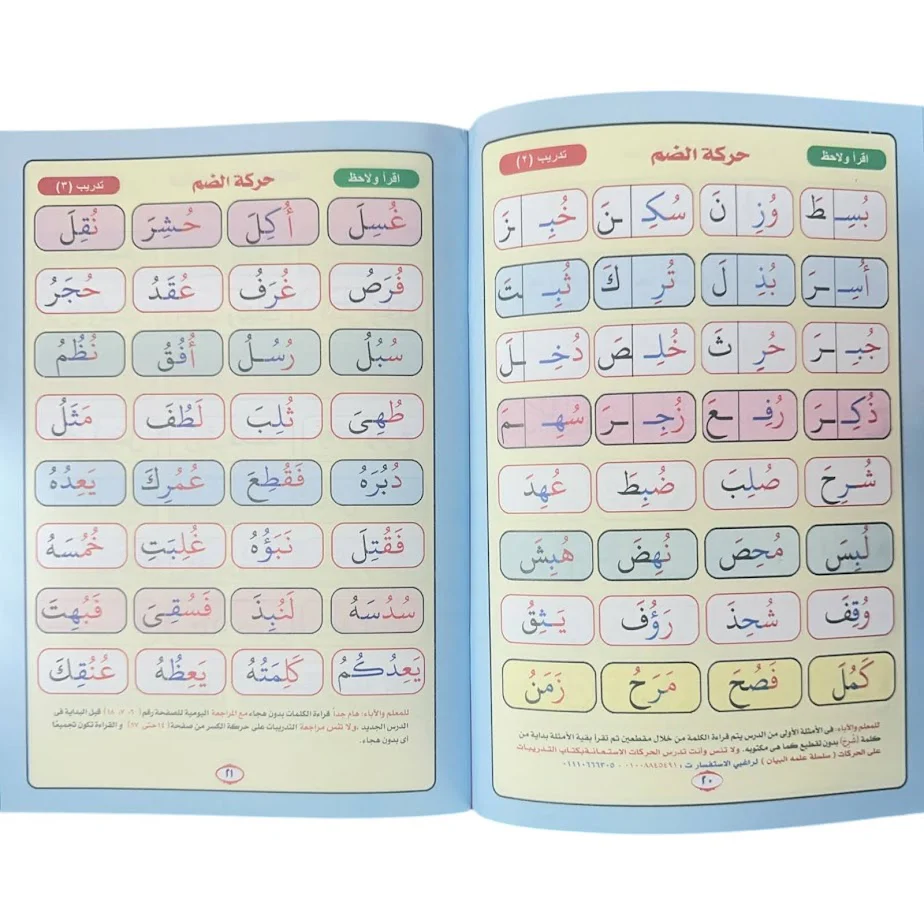 اقرأ ولاحظ حركة الضم تدريب (٢)
بُسِـ ـطَ وُزِ نَ سُكِـ ـنَ خُبِـ ـزَ
أُسِـ ـرَ بُذِ لَ تُرِ كَ ثُبِـ ـتَ
جُبِـ ـرَ حُرِ ثَ خُلِـ ـصَ دُخِـ ـلَ
ذُكِـ ـرَ رُفِـ ـعَ زُجِـ ـرَ سُهِـ ـمَ
شُرِحَ صُلِبَ ضُبِطَ عُهِدَ
لُبِسَ مُحِصَ نُهِضَ هُبِشَ
وُقِفَ شُحِذَ رَؤُفَ يَـثِقُ
كَمُلَ فَصُحَ مَرَحُ زَمَنُ
للمعلم والأباء: فى الأمثلة الأولى من الدرس يتم قراءة الكلمة من خلال مقطعين ثم تقرأ بقية الأمثلة بداية من
كلمة (شُرِحَ) بدون تقطيع كما هى مكتوبه. ولا تنس وأنت تدرس الحركات الاستعانة بكتاب التدريبات
على الحركات ( سلسلة علمه البيان ) لراغبي الاستفسار ت : ٠١٠٠٨٨٤٥٤٩١ - ٠١١١٠٦٦٦٣٠٥
٢٠
اقرأ ولاحظ حركة الضم تدريب (٣)
غُسِلَ أُكِلَ حُشِرَ نُقِلَ
فُرَصُ غُرَفُ عُقَدُ حُجَرُ
سُبُلُ رُسُـلُ أُفُقُ نُظُمُ
طُهِىَ ثُلِبَ لَطُفَ مَثَلُ
دُبُرَهُ فَقُطِعَ عُمُرِكَ يَعِدُهُ
فَقُتِلَ نَبَؤُهُ غُلِبَتِ خُمُسَهُ
سُدُسَهُ لَنُبِذَ فَسُقِىَ فَبُهِتَ
يَعِدُكُمُ كَلِمَتُهُ يَعِظُهُ عُنُقِكَ
للمعلم والأباء: هام جداً قراءة الكلمات بدون هجاء مع المراجعة اليومية للصفحة رقم( ٦، ٧، ١٨) قبل البداية فى
الدرس الجديد ،ولا تنس مراجعة التدريبات على حركة الكسر من صفحة(١٤حتى ٢٧) و القراءة تكون تجميعًا
أى بدون هجاء.
٢١